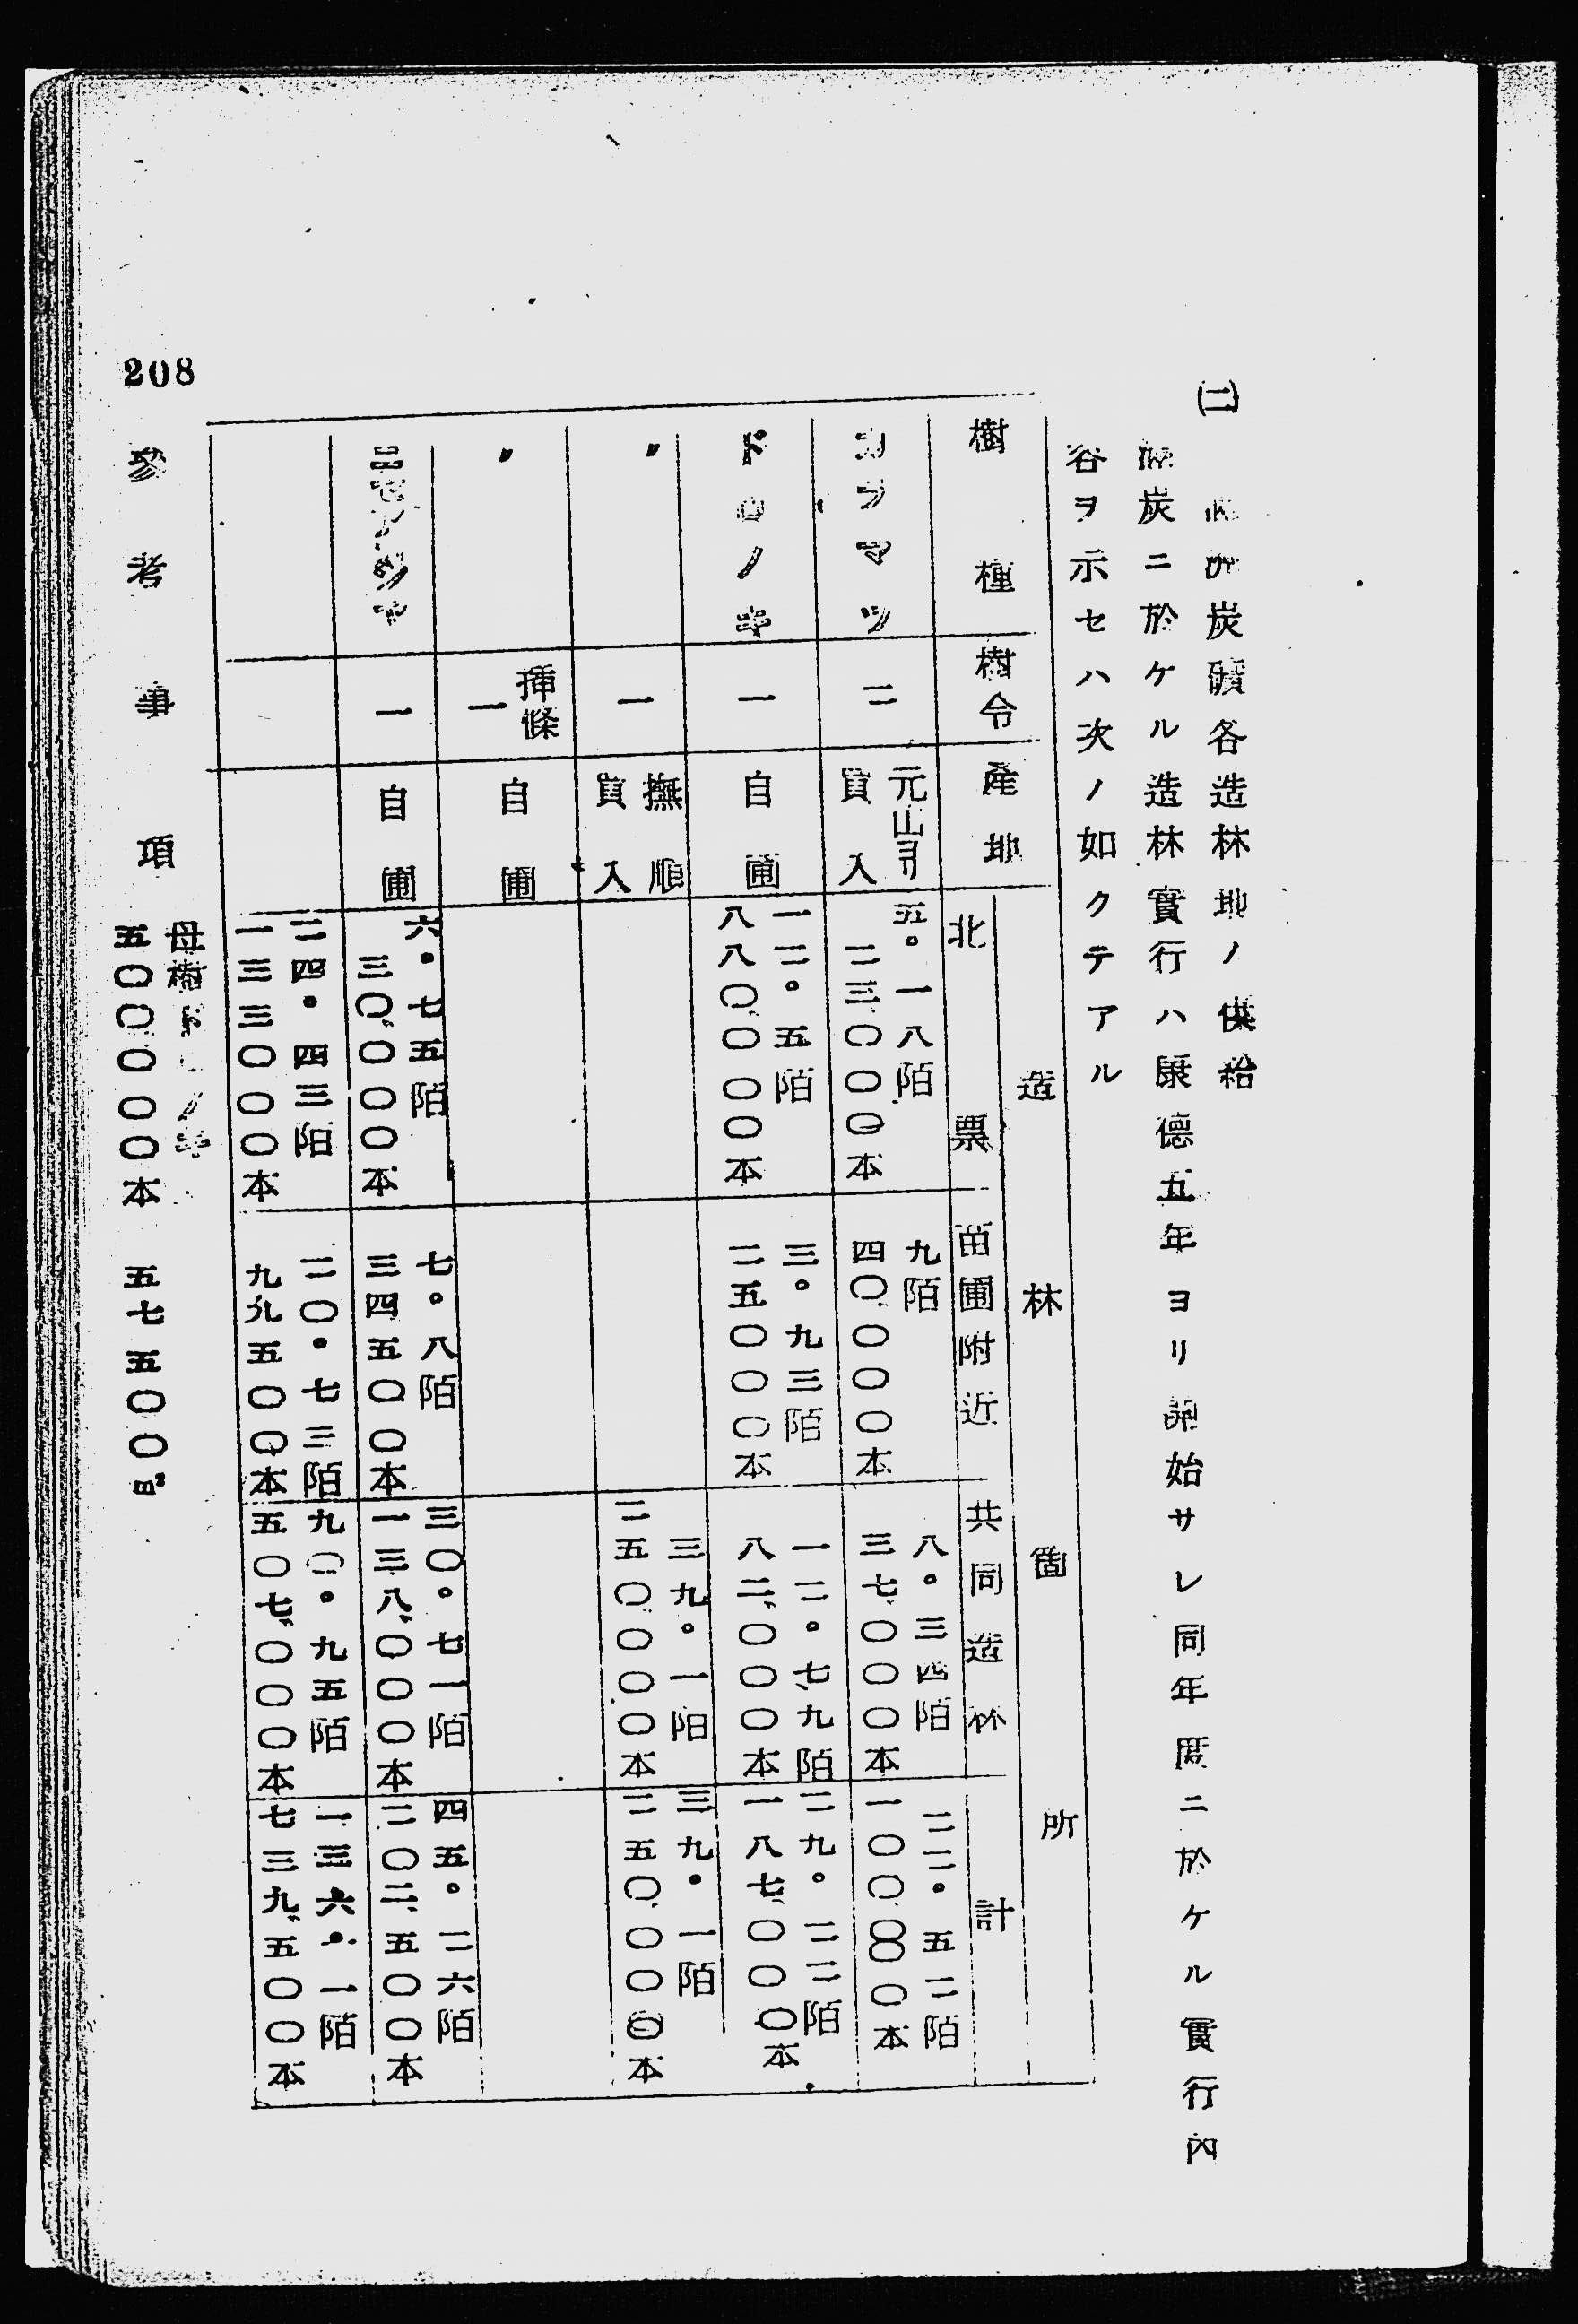 ㈡
炭礦各造林地ノ供給
炭ニ於ケル造林實行ハ康德五年ヨリ開始サレ同年度ニ於ケル實行內
容ヲ示セハ次ノ如クテアル
造林箇所
樹種 樹令 產地 北票 苗圃附近 共同造林 計
カラマツ 二 元山ヨリ買入 五。一八陌 二三〇〇〇本 九陌 四〇、〇〇〇本 八。三四陌 三七、〇〇〇本 二二。五二陌 一〇〇、〇〇〇本
ドロノキ 一 自圃 一二。五陌 八八〇、〇〇〇本 三。九三陌 二五〇〇〇本 一二。七九陌 八二、〇〇〇本 二九。二二陌 一八七、〇〇〇本
〃 一 撫順買入 三九。一陌 二五〇、〇〇〇本 三九。一陌 二五〇、〇〇〇本
〃 挿條一 自圃
ニセアカシヤ 一 自圃 六。七五陌 三〇、〇〇〇本 七。八陌 三四五〇〇本 三〇。七一陌 一三八、〇〇〇本 四五。二六陌 二〇二、五〇〇本
二四。四三陌 一三三〇〇〇本 二〇。七三陌 九九五〇〇本 九〇。九五陌 五〇七、〇〇〇本 一三六。一陌 七三九、五〇〇本
參考事項 母樹ドロノキ 五〇〇〇〇〇本 五七五〇〇m²
208